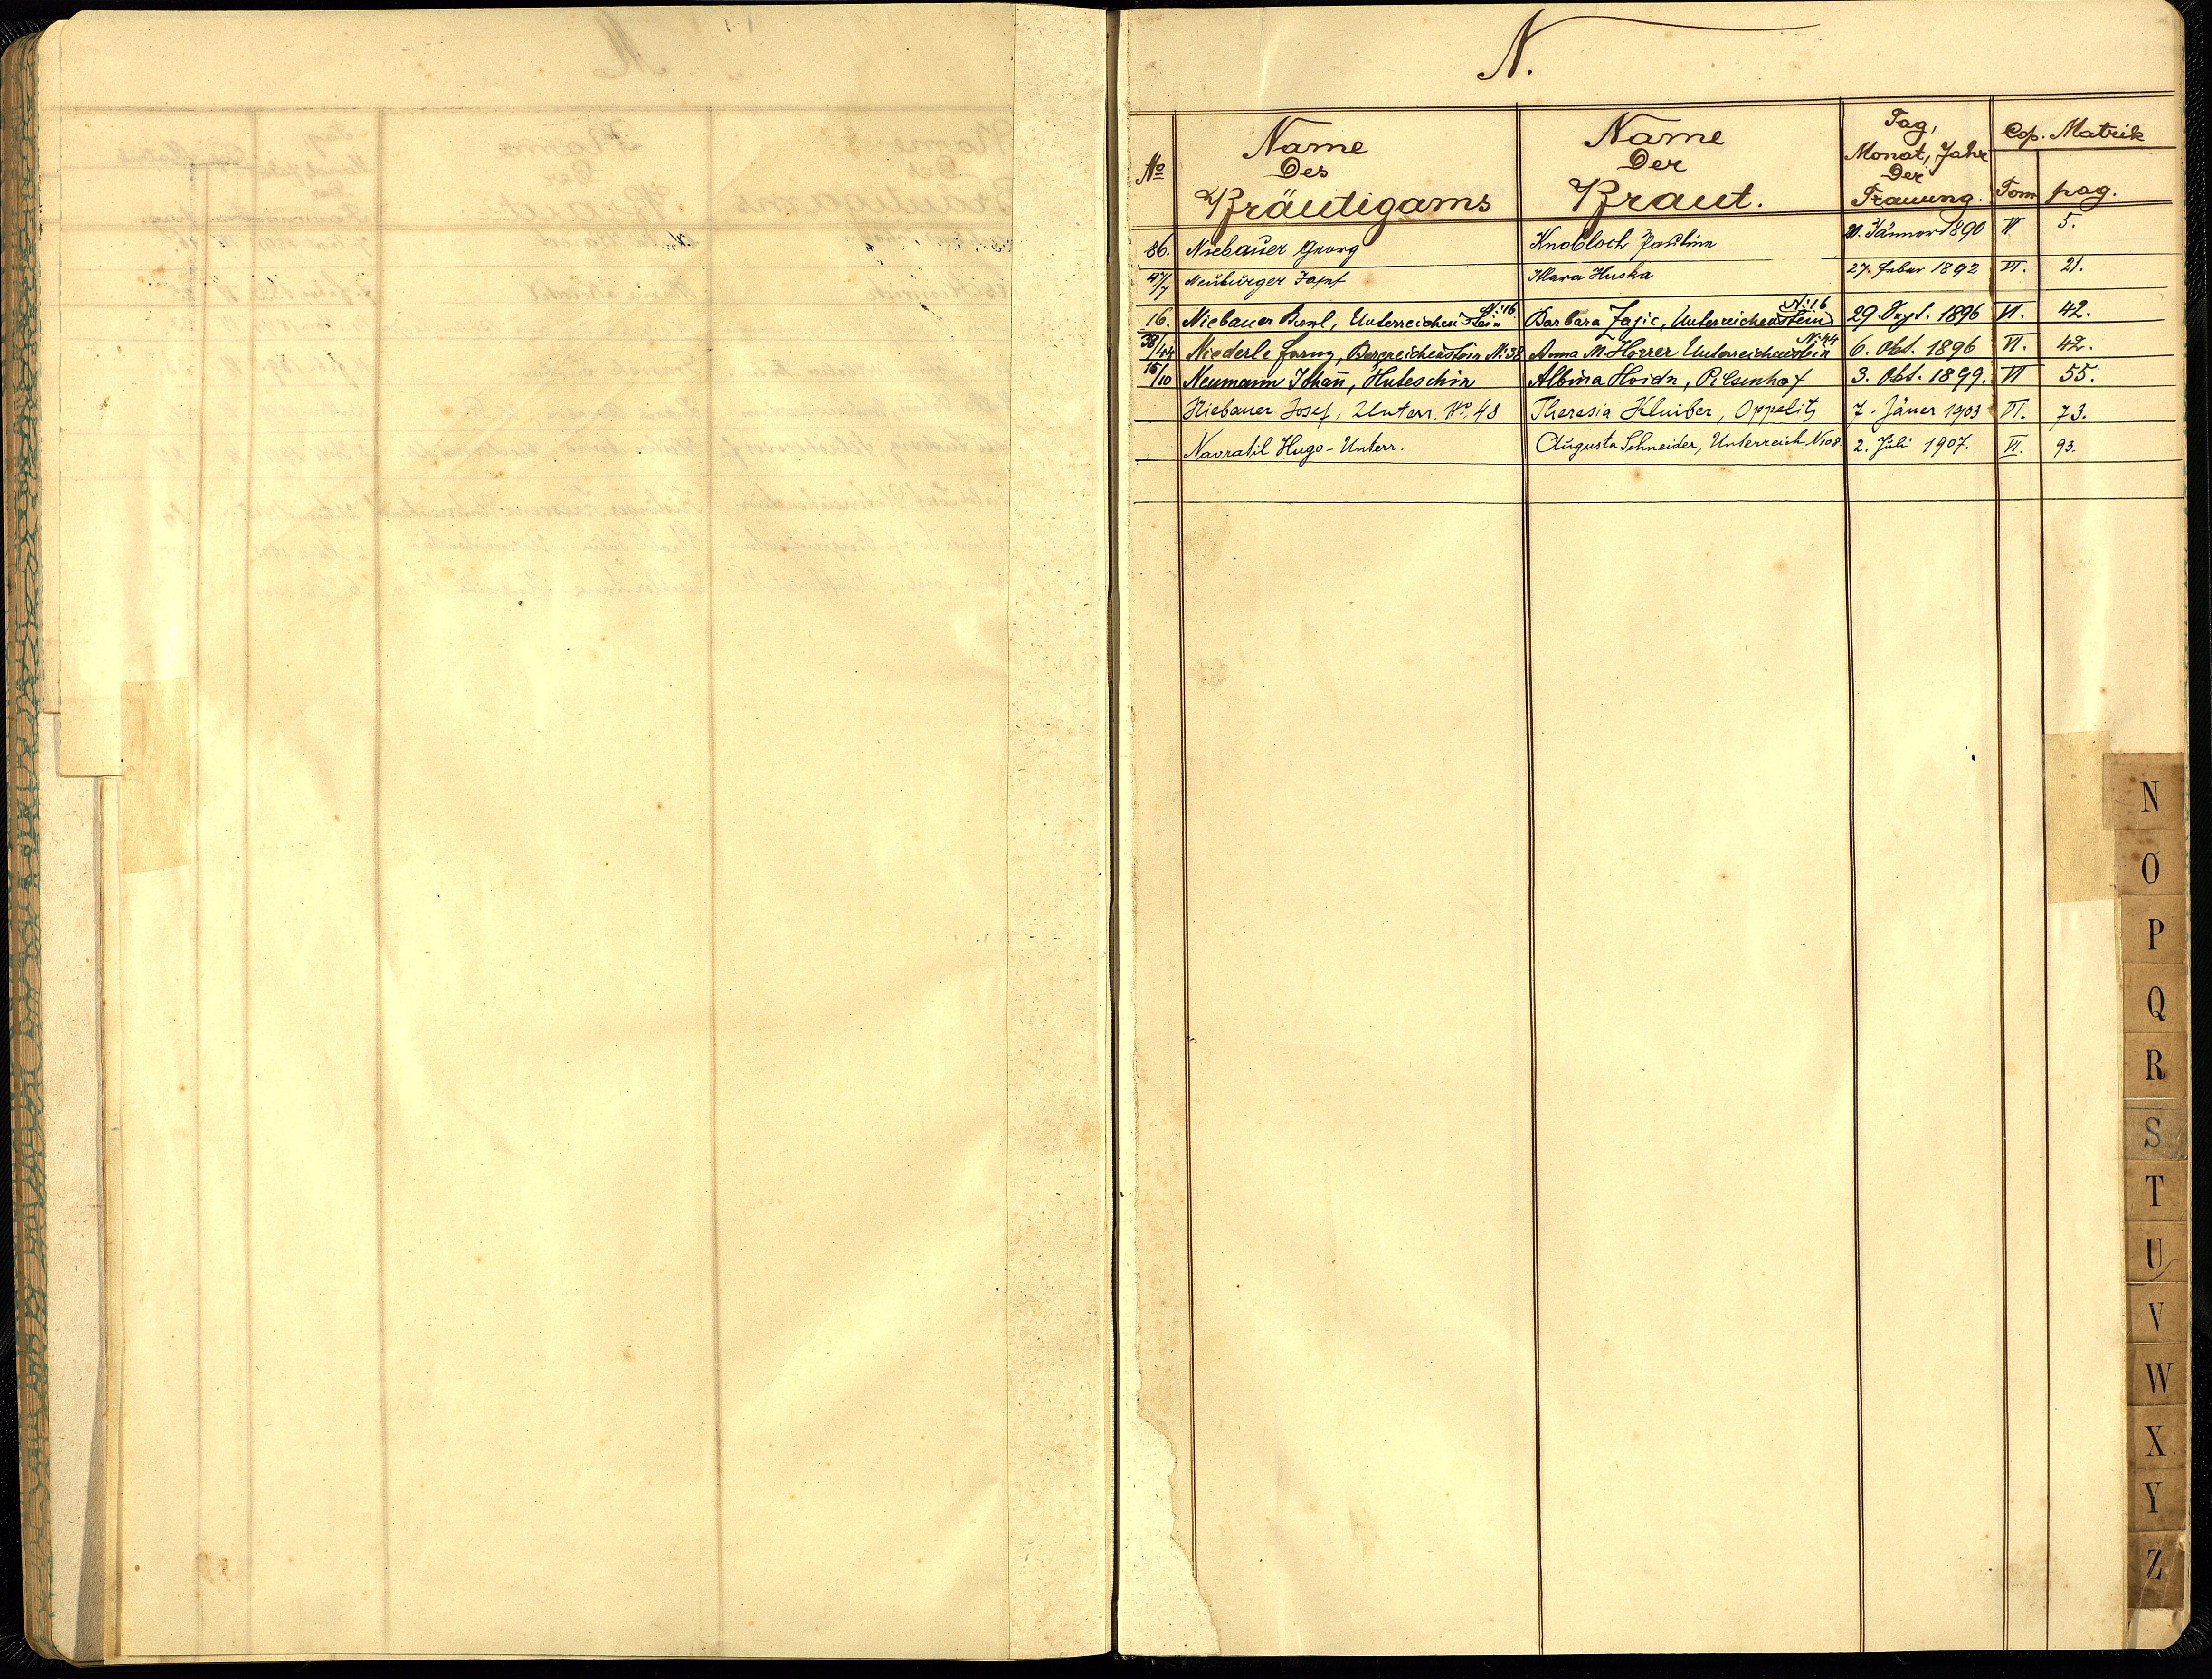 N.
No Name Des Bräutigams Name Der Braut. Tag, Monat, Jahr Der Trauung. Cop. Matrik Tom pag.
86. Niebauer Georg Knobloch Paulina 21. Jänner 1890 VI 5.
Neuburger Josef Klara Huska 27. Feber 1892 VI. 21.
16. Niebauer, Unterreichenstein N: 16 Barbara Jazic, Unterreichenstein N: 16 29 Sept. 1896 VI. 42.
38/44 Niederle Franz, Bergreichenstein N: 38 Anna M. Horrer Unterreichenstein N: 44 6. Okt. 1896 VI. 42.
15/10 Neumann Johañ, Huteschin Albina Hoidn, Pilsenhof 3. Okt. 1899. VI 55.
Niebauer Josef, Unterr. No. 48 Theresia Kluiber, Oppelitz 7. Jäner 1903 VI. 73.
Navratil Hugo - Unterr. Augusta Schneider, Unterreich N108 2. Juli 1907. VI. 93.
N
O
P
Q
R
S
T
U
V
W
X
Y
Z